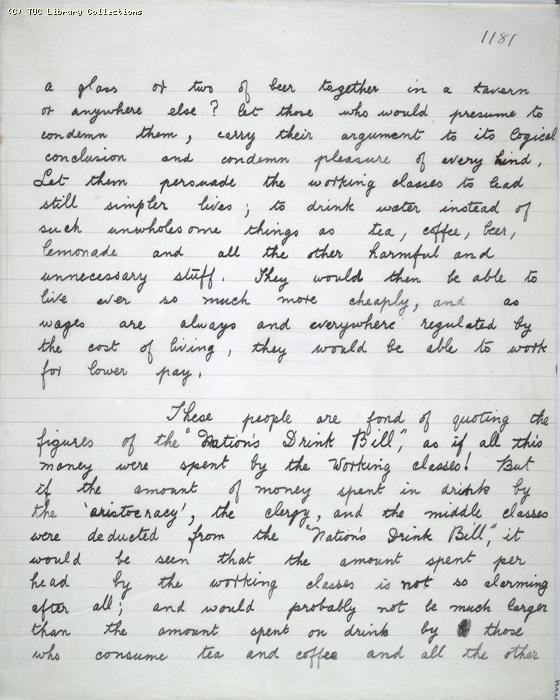 (C) TUC Library Collections
1181
a glass or two of beer together in a tavern
or anywhere else? Let those who would presume to
condemn them, carry their argument to its logical
conclusion and condemn pleasure of every kind.
Let them persuade the working classes to lead
still simpler lives; to drink water instead of
such unwholesome things as tea, coffee, beer,
lemonade and all the other harmful and
unnecessary stuff. They would then be able to
live ever so much more cheaply, and as
wages are always and everywhere regulated by
the cost of living, they would be able to work
for lower pay.
These people are fond of quoting the
figures of the "Nation's Drink Bill," as if all this
money were spent by the Working classes! But
if the amount of money spent in drink by
the 'aristocracy', the clergy, and the middle classes
were deducted from the "Nation's Drink Bill," it
would be seen that the amount spent per
head by the working classes is not so alarming
after all; and would probably not be much larger
than the amount spent on drink by those
who consume tea and coffee and all the other